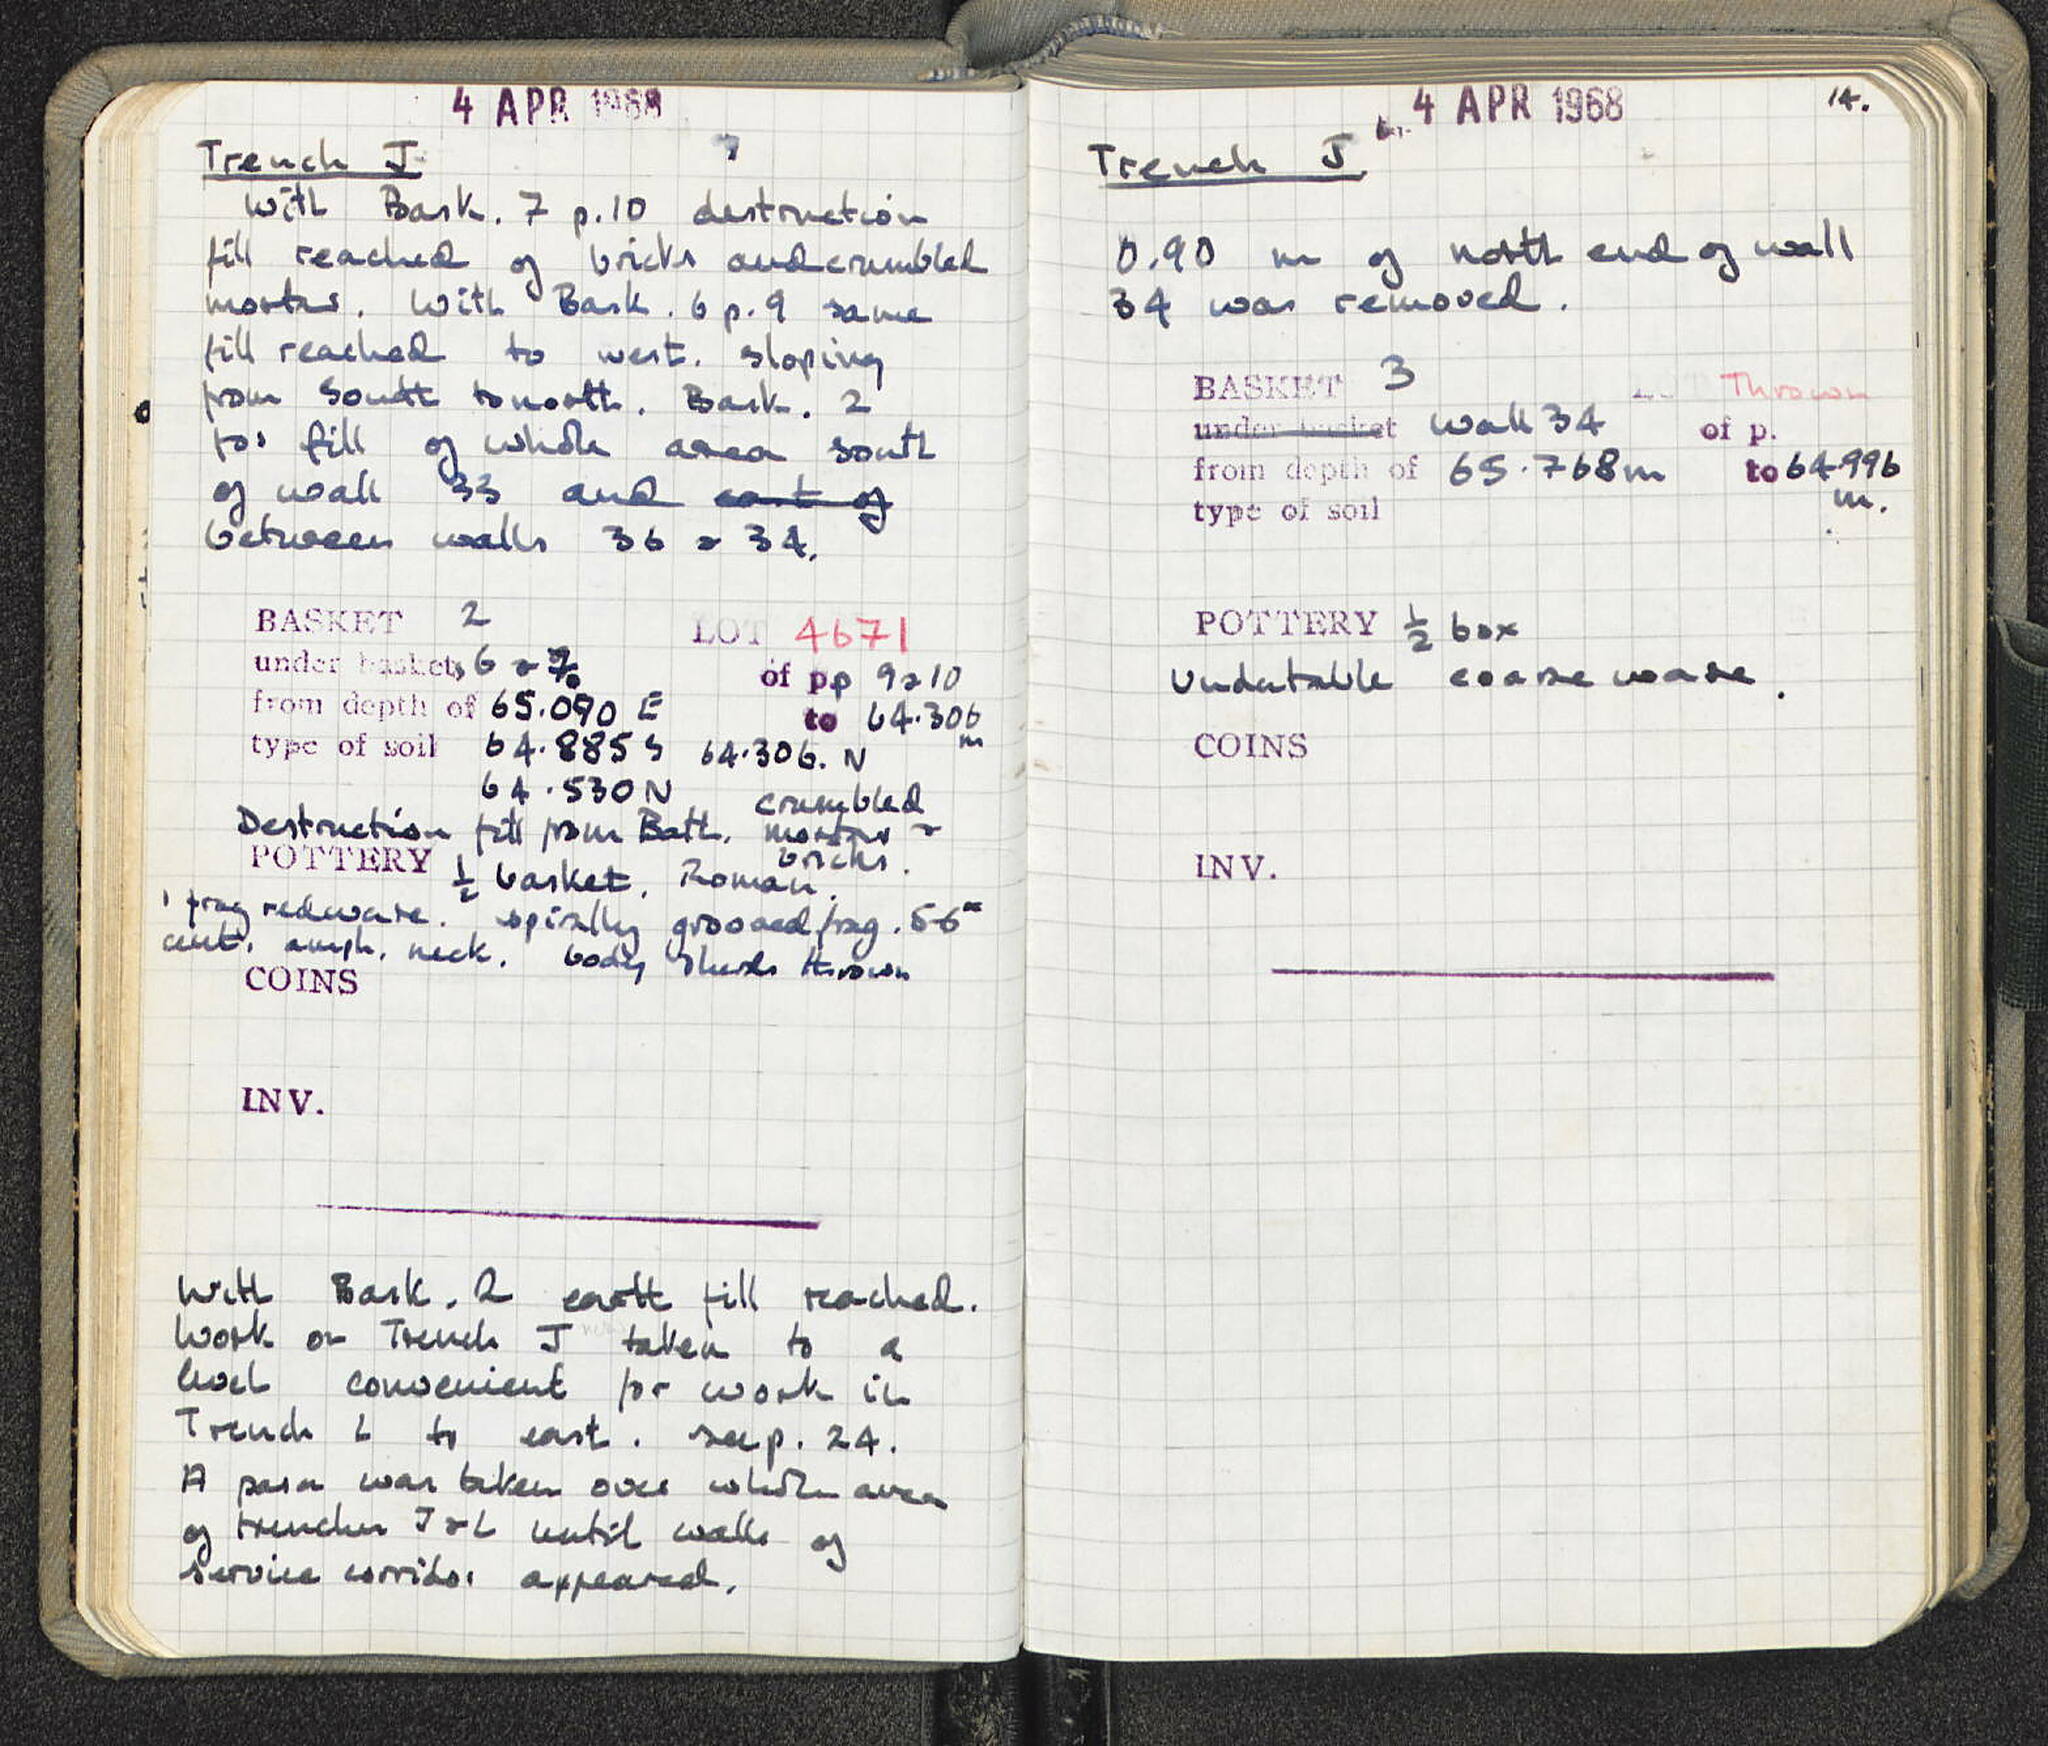 4 APR 1968
Trench J
With Bask. 7 p.10 destruction
fill reached of bricks and crumbled
mortar. With Bask. 6 p.9 same
fill reached to west. sloping
from South to north. Bask. 2
for fill of whole area south
of wall 33 and east of
between walls 36 & 34.
BASKET 2 LOT 4671
under baskets 6 & 7 of pp 9 & 10
from depth of 65.090 E to 64.306 m
type of soil 64.885 S 64.306. N
64.530 N
Destruction fill from Bath. crumbled mortar & bricks.
POTTERY ½ basket. Roman.
1 frag redware. spirally grooved frag. 5-6th
cent. amph. neck. body sherds thrown
COINS
INV.
With Bask. 2 earth fill reached.
Work on Trench J taken to a
level convenient for work in
Trench L to east. see p. 24.
A pass was taken over whole area
of trenches J & L until walls of
service corridor appeared.
4 APR 1968 14.
Trench J
0.90 m of north end of wall
34 was removed.
BASKET 3 Thrown
under basket wall 34 of p.
from depth of 65.768m to 64.996 m.
type of soil
POTTERY ½ box
Undatable coarse ware.
COINS
INV.